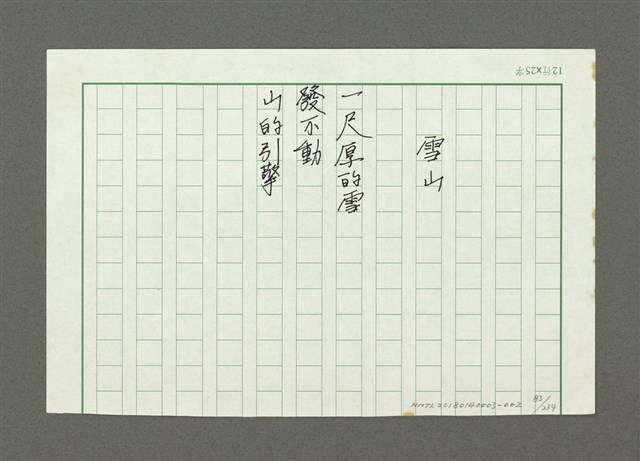 12行×25字
雪山
一尺厚的雪
發不動
山的引擎
NMTL20180140003-002
83/234